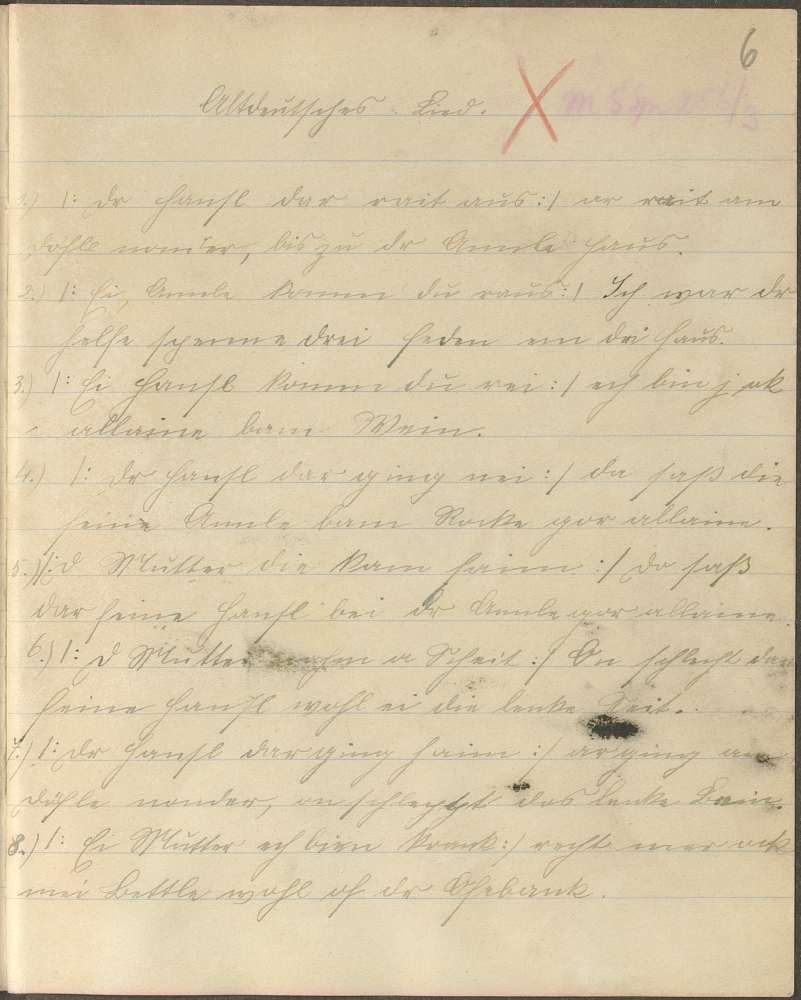 6
Altdeutsches Lied.
1.) |: Dr Hansl dar rait aus :| ar rait am
Döfle nonder, bis zu dr Annle Haus.
2.) |: Ei, Annle komm du raus :| Ich war dr
helfe sperrne drei Heden em dri Haus.
3.) |: Ei Hansl komm du rei :| ech bin j ok
allaine bam Wein.
4.) |: Dr Hansl dar ging nei :| da saß die
feine Annle bam Rocke gor allaine.
5.) |: D Mutter die kam haim :| Do saß
dar feine Hansl bei dr Annle gor allaine.
6.) |: D Mutter a Scheit :| On schlecht dan
feine Hansl wohl ei die lenke Seit.
7.) |: Dr Hansl dar ging haim :| ar ging am
Döfle nonder, on schleppt das lenke Bain.
8.) |: Ei Mutter ech bien krank :| recht mer ock
mei Bettle wohl of dr Ofebank.